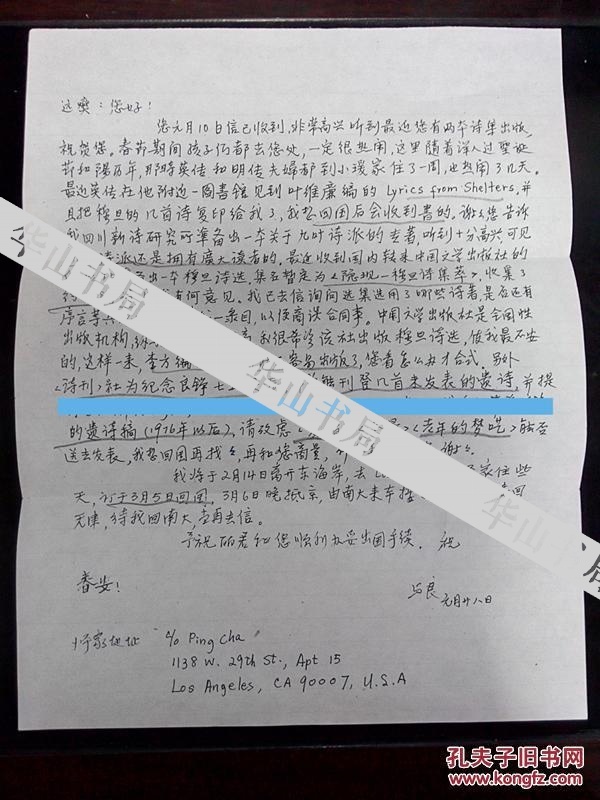 运燮：您好！
您元月10日信已收到，非常高兴听到最近您有两本诗集出版，
祝贺您，春节期间孩子们都去您处，一定很热闹，这里随着深入过圣诞
节和阳历年，那时英传和明传夫妇都到小瑗家住了一周，也热闹了几天。
最近英传在他附近一图書馆见到叶维廉编的 Lyrics from Shelters，并
且把穆旦的几首诗复印给我了，我想回国后会收到書的。谢谢您告诉
我四川新诗研究所准备出一本关于九叶诗派的专著，听到十分高兴可见
诗派还是拥有广大读者的，最近收到国内转来中国文学出版社的
出一本穆旦诗选，集名暂定为《隐现—穆旦诗集萃》，收集了
有何意见。我已去信询问选集选用了哪些诗，是否还有
序言等 目，以便商谈合同事。中国文学出版社是全国性
出版机构， 我很希望该社出版穆旦诗选，使我最不安
的，这样一来，李方编 容易出版了，您看怎么办才合式，另外
《诗刊》社为纪念良铮七 能刊登几首未发表的遗诗，并提
的遗诗稿（1976年以后），请考虑 《老年的梦呓》能否
送去发表，我想回国再找，再和您商量， 谢谢。
我将于2月14日离开东海岸，去 家住些
天，约于3月5日回国，3月6日晚抵京，由南大来车接 回
天津，待我回南大，当再去信。
予祝丽君和您顺利办妥出国手续。祝
春安！
与良
元月廿八日
师家地址 c/o Ping Cha
1138 W. 29th St., Apt 15
Los Angeles, CA 90007, U.S.A
华山书局
华山书局
华山书局
孔夫子旧书网
www.kongfz.com